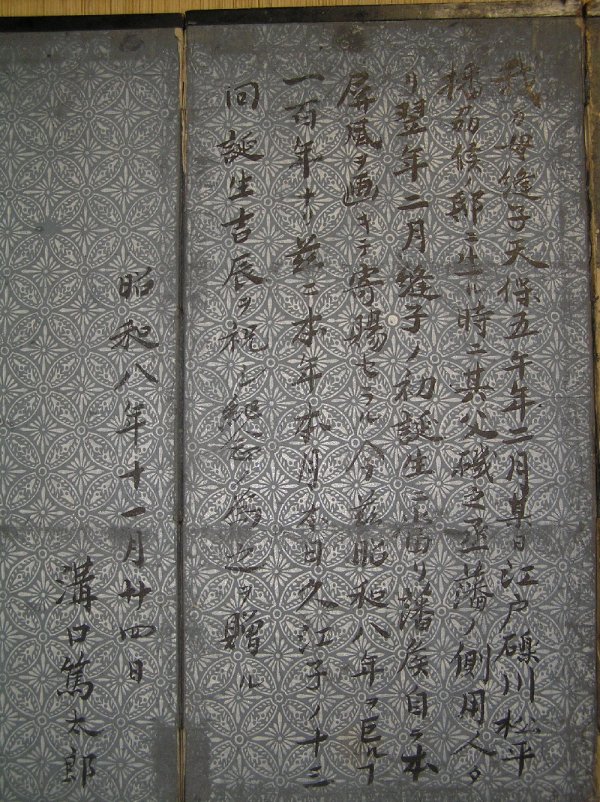 我カ母縫子天保五午年二月卓日江戸礫川松平
播磨侯ノ邸ニ生ル時ニ其父磯之丞藩ノ側用人タ
リ翌年二月縫子ノ初誕生ニ當リ藩侯自ラ本
屏風ヲ画キテ寄賜セラル今茲昭和八年ヲ巨ル
一百年ナリ茲ニ本年本月本日久江子ノ十三
回誕生吉辰ヲ祝シ紀念ノ為之ヲ贈ル
昭和八年十一月廿四日
溝口篤太郎